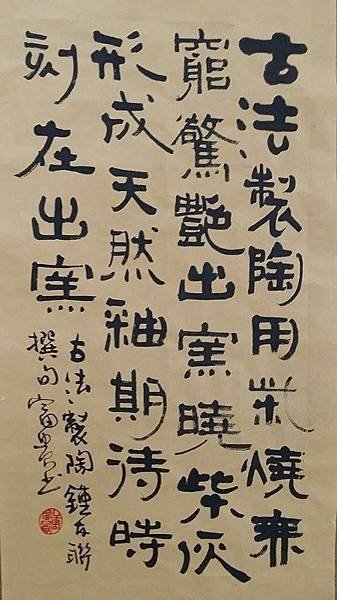 古法製陶用柴燒無
窮驚艷出窯曉柴灰
形成天然釉期待時
刻在出窯
古法製陶鍾在聯
撰句富貴书